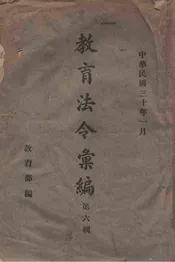 中華民國三十年一月
教育法令彙編 第六輯
教育部編